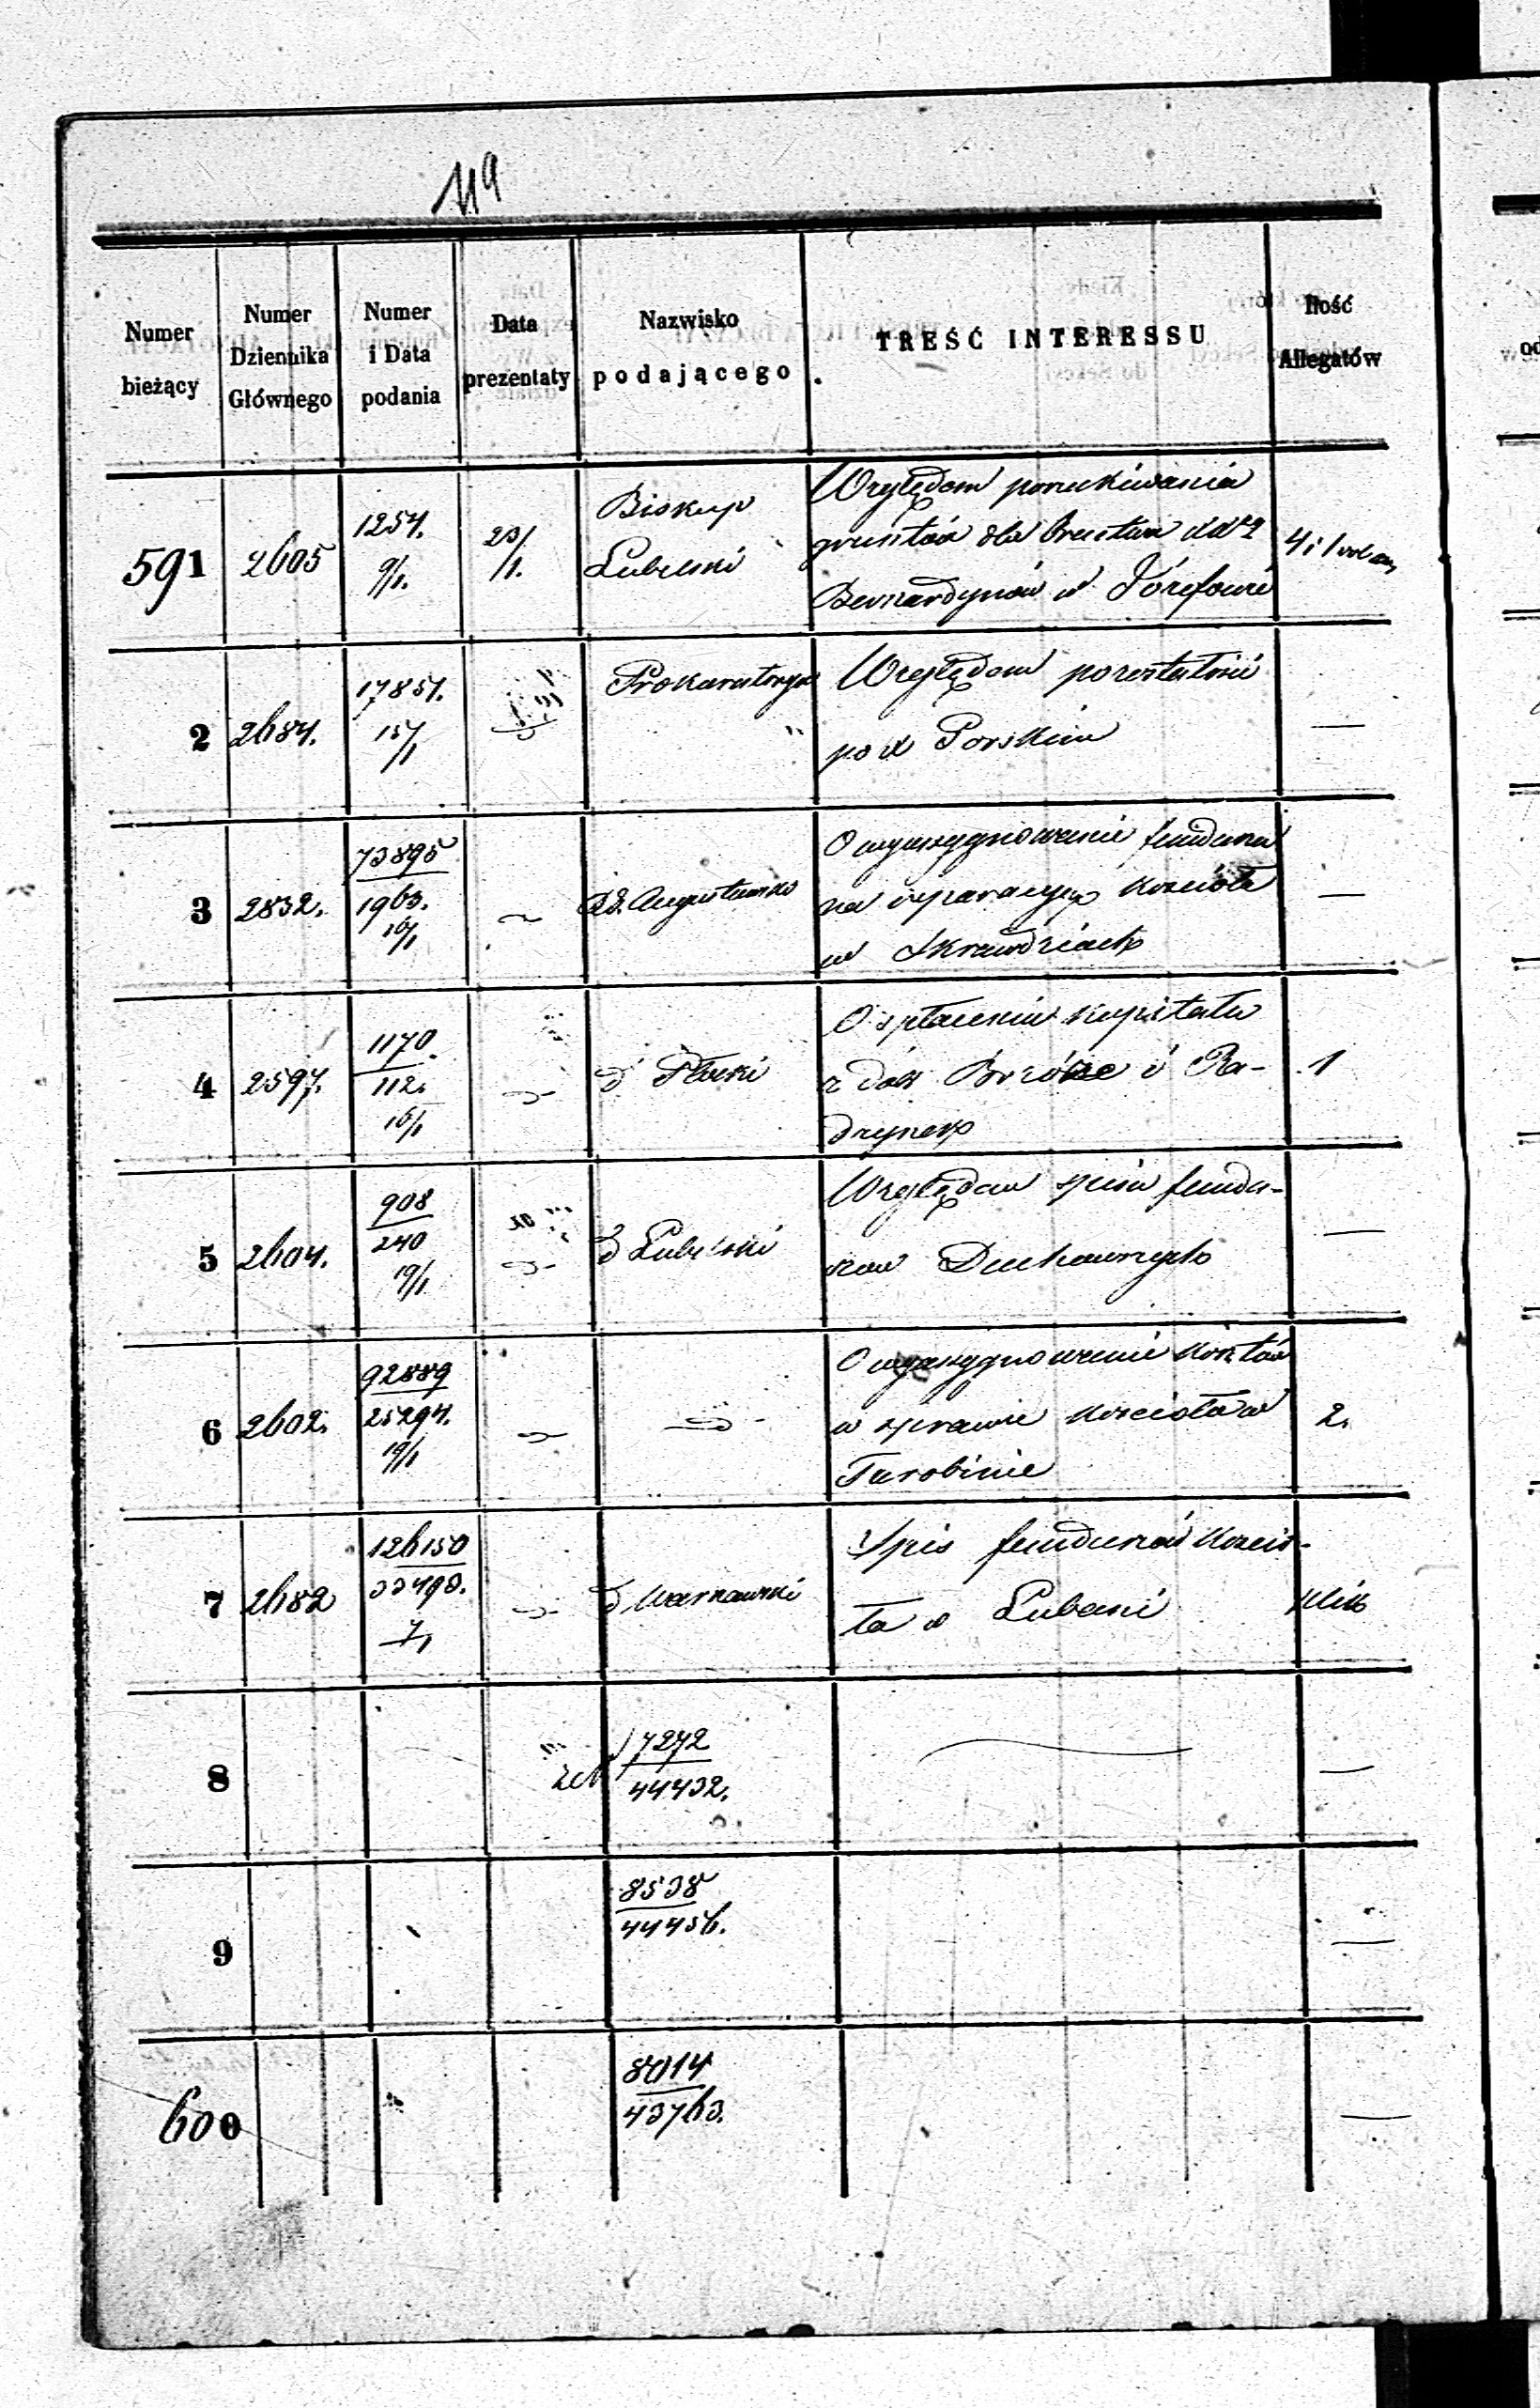 119
Numer bieżący
Numer Dziennika Głównego
Numer i Data podania
Data prezentaty
Nazwisko podającego
TREŚĆ INTERESSU
Ilość Allegatów
591 2605
1254.
9/1.
23/1.
Biskup
Lubelski
Względem
gruntów dla
Bernardynów w Józefowie
4 i 1
2 2684.
17851.
15/1
Prokuratorya
Względem pozostałości
pod Porskim
—
3 2832.
73895
1963.
16/1
Augustowski
O wyasygnowanie fundusz
na reparacyę kościoła
w Skrawdziach
—
4 2597.
1170
112.
16/1
d° Płocki
O spłaceniu kapitału
z dóbr Brzóze i Ra-
dzynek
1
5 2604.
908
240
19/1
d° Lubelski
Względem spisu fundu-
szów Duchownych
—
6 2602.
92889
25294.
19/1
O wyasygnowanie kosztów
w sprawie kościoła w
Turobinie
2.
7 2682
126150
33498.
7/1
d° Warszawski
Spis funduszów kościo-
ła w Lubani
8
7272
44432.
—
9
8538
44456.
—
600
8014
43763.
—